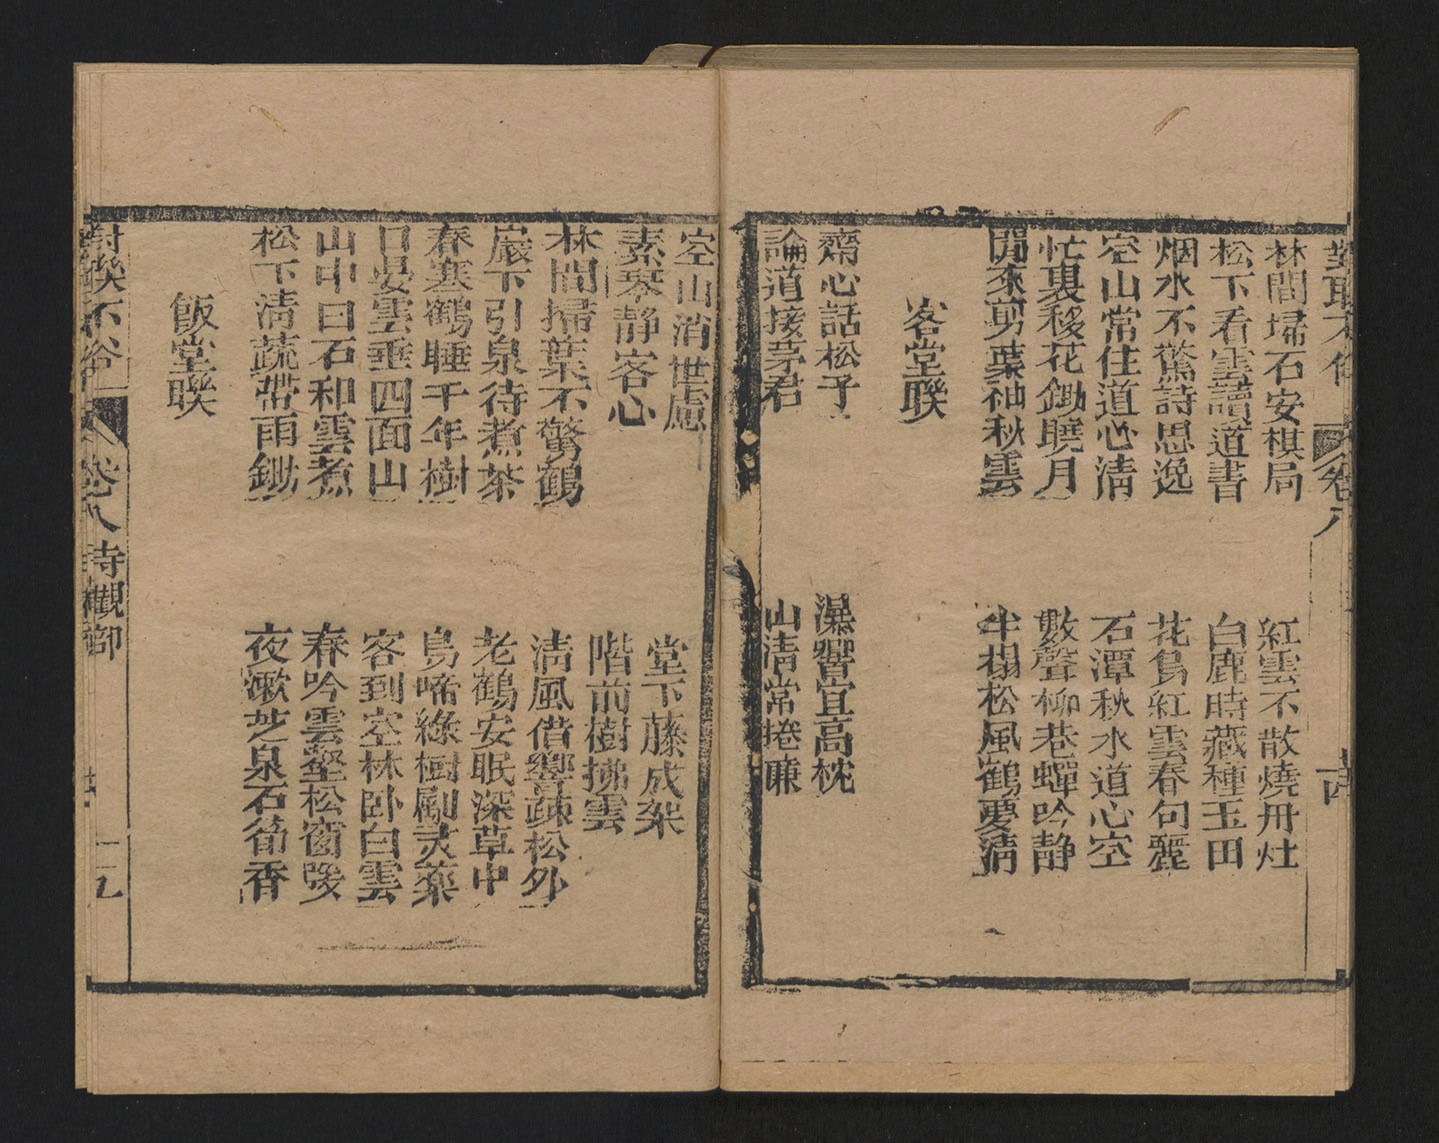 對聯不俗 卷八 十四
林間埽石安棋局 紅雲不散燒丹灶
松下看雲讀道書 白鹿時藏種玉田
烟水不驚詩思逸 花鳥紅雲春句麗
空山常住道心清 石潭秋水道心空
忙裏移花鋤曉月 數聲柳巷蟬吟靜
閒來剪葉袖秋雲 半榻松風鶴夢清
客堂聯
齋心話松子 瀑響宜高枕
論道接茅君 山清常捲簾
空山消世慮 堂下藤成架
素琴静客心 階前樹拂雲
林間掃葉不驚鶴 清風借響疎松外
巖下引泉待煮茶 老鶴安眠深草中
春寒鶴睡千年樹 鳥啼綠樹劚灵藥
日晏雲垂四面山 客到空林卧白雲
山中曰石和雲煮 春吟雲壑松窗暖
松下淸蔬帶雨鋤 夜漱芝泉石筍香
飯堂聯
對聯不俗 卷八寺觀部 十五